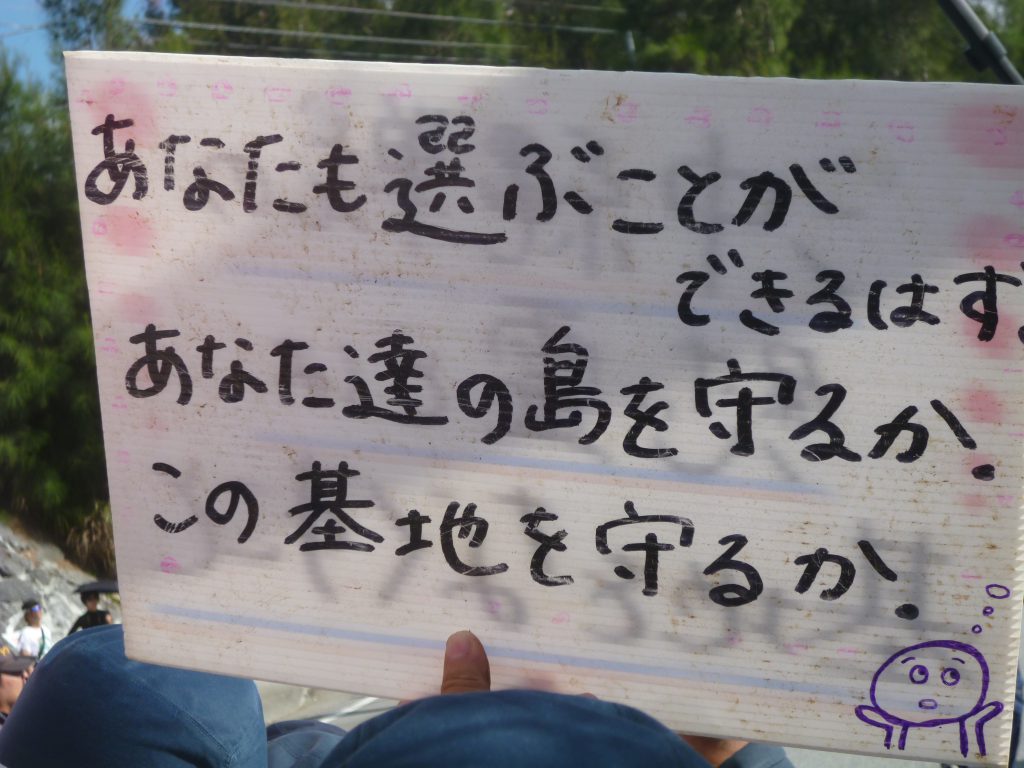 あなたも選ぶことが
できるはず。
あなた達の島を守るか.
この基地を守るか.